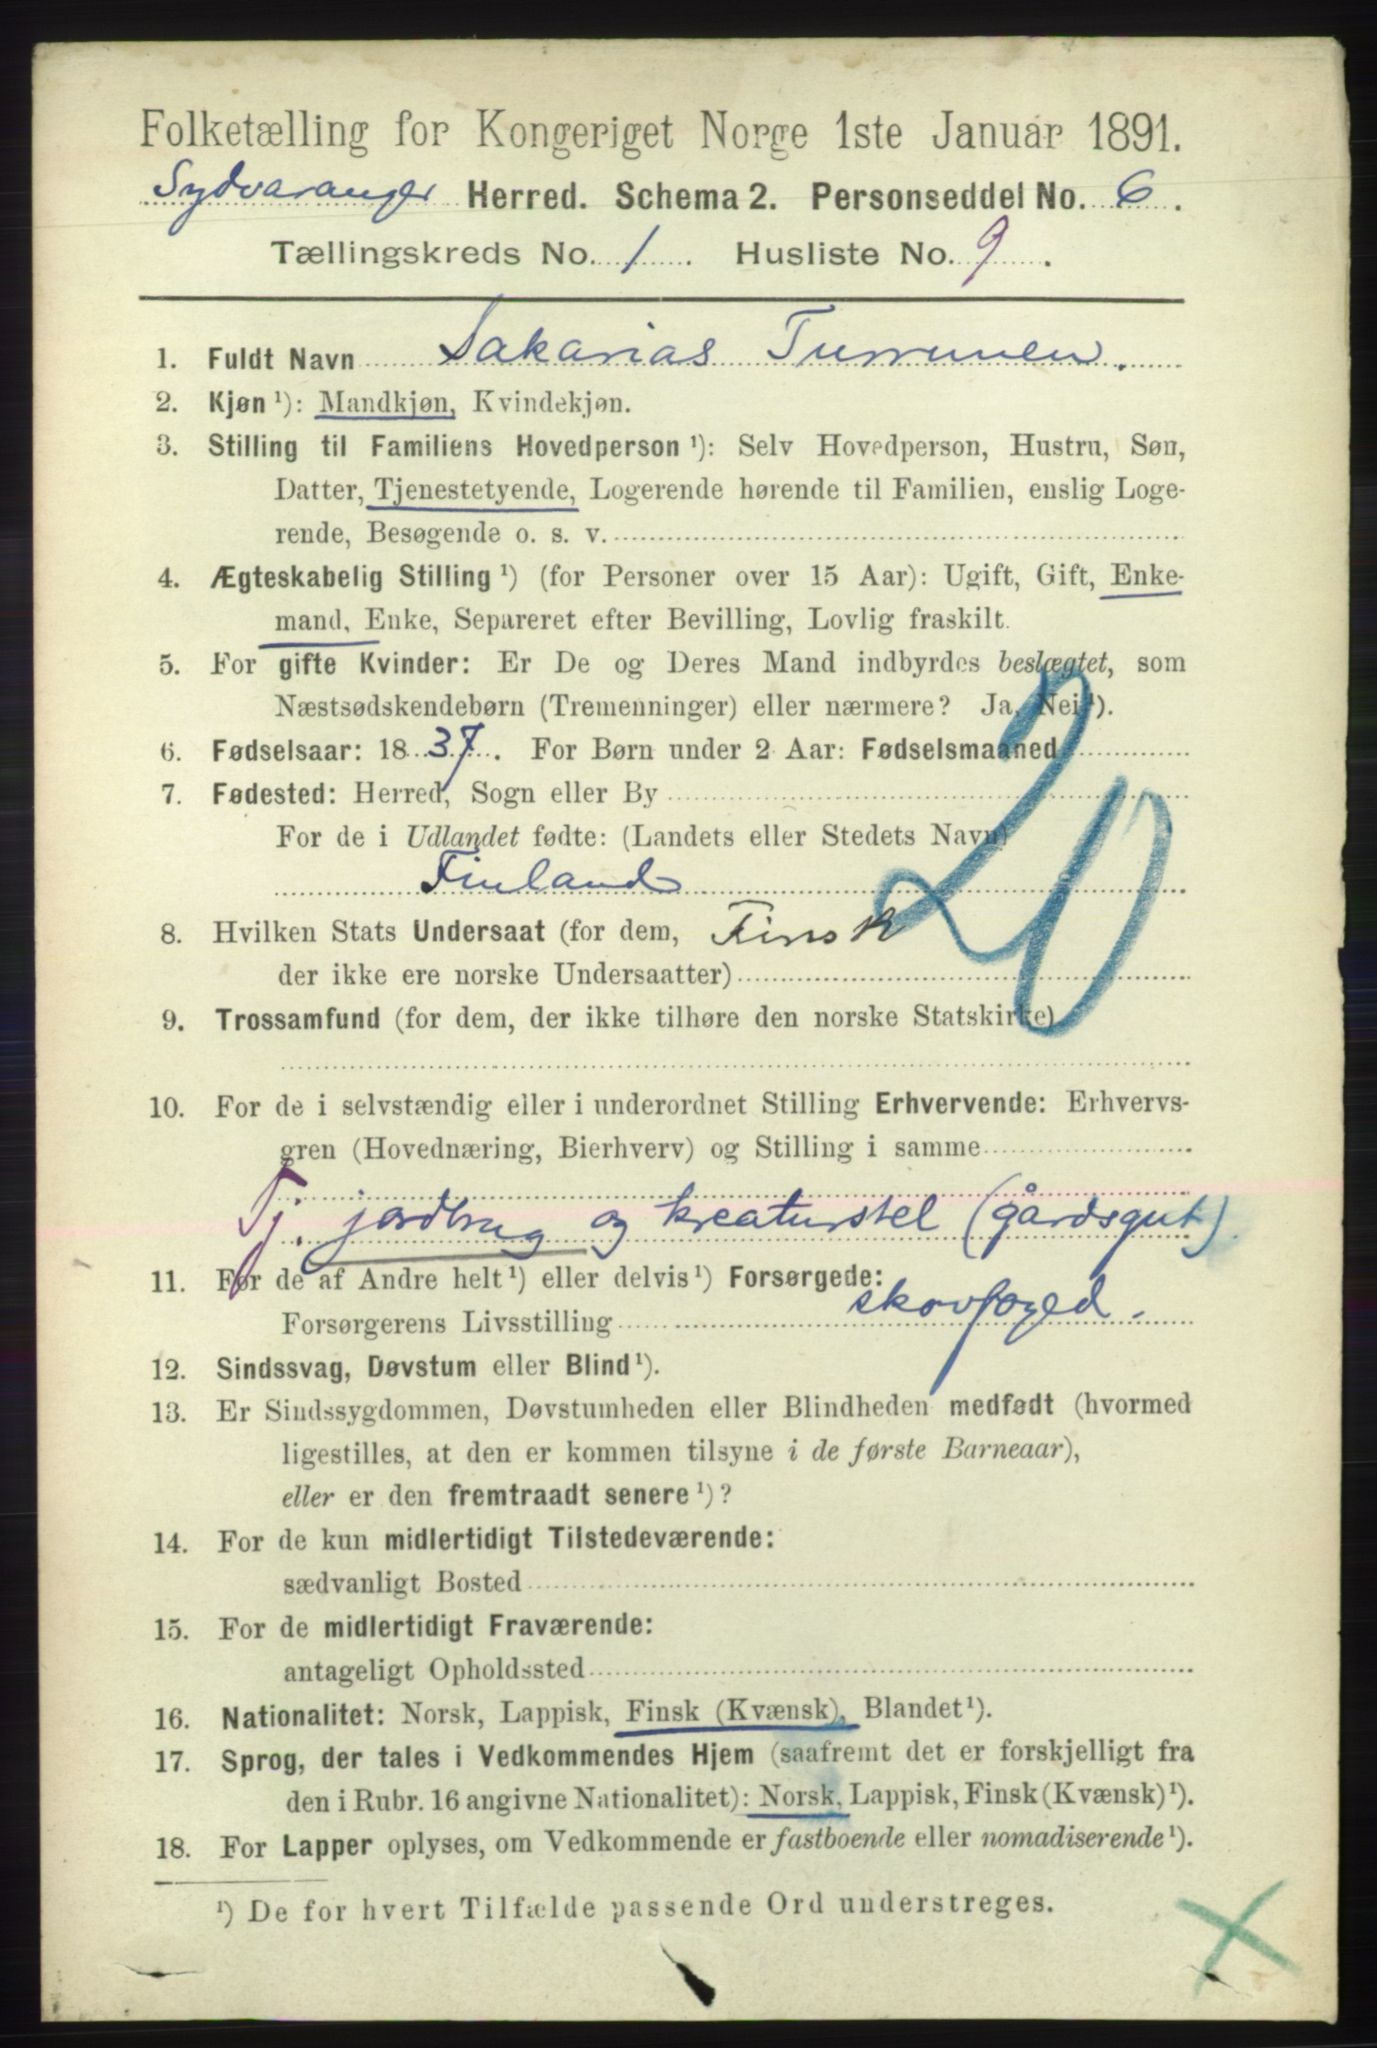 Folketælling for Kongeriget Norge 1ste Januar 1891.
Sydvaranger Herred. Schema 2. Personseddel No. 6.
Tællingskreds No. 1. Husliste No. 9.
1. Fuldt Navn Sakarias
2. Kjøn ¹): Mandkjøn, Kvindekjøn.
3. Stilling til Familiens Hovedperson ¹): Selv Hovedperson, Hustru, Søn,
Datter, Tjenestetyende, Logerende hørende til Familien, enslig Loge-
rende, Besøgende o. s. v.
4. Ægteskabelig Stilling ¹) (for Personer over 15 Aar): Ugift, Gift, Enke-
mand, Enke, Separeret efter Bevilling, Lovlig fraskilt.
5. For gifte Kvinder: Er De og Deres Mand indbyrdes beslægtet, som
Næstsødskendebørn (Tremenninger) eller nærmere? Ja, Nei ¹).
6. Fødselsaar: 1837. For Børn under 2 Aar: Fødselsmaaned
7. Fødested: Herred, Sogn eller By
For de i Udlandet fødte: (Landets eller Stedets Navn)
Finland
20
8. Hvilken Stats Undersaat (for dem, Finsk
der ikke ere norske Undersaatter)
9. Trossamfund (for dem, der ikke tilhøre den norske Statskirke)
10. For de i selvstændig eller i underordnet Stilling Erhvervende: Erhvervs-
gren (Hovednæring, Bierhverv) og Stilling i samme
Tj. jordbrug og kreaturstel (gårdsgut).
11. For de af Andre helt ¹) eller delvis ¹) Forsørgede:
Forsørgerens Livsstilling skovfoged.
12. Sindssvag, Døvstum eller Blind ¹).
13. Er Sindssygdommen, Døvstumheden eller Blindheden medfødt (hvormed
ligestilles, at den er kommen tilsyne i de første Barneaar),
eller er den fremtraadt senere ¹)?
14. For de kun midlertidigt Tilstedeværende:
sædvanligt Bosted
15. For de midlertidigt Fraværende:
antageligt Opholdssted
16. Nationalitet: Norsk, Lappisk, Finsk (Kvænsk), Blandet ¹).
17. Sprog, der tales i Vedkommendes Hjem (saafremt det er forskjelligt fra
den i Rubr. 16 angivne Nationalitet): Norsk, Lappisk, Finsk (Kvænsk) ¹).
18. For Lapper oplyses, om Vedkommende er fastboende eller nomadiserende ¹).
¹) De for hvert Tilfælde passende Ord understreges.